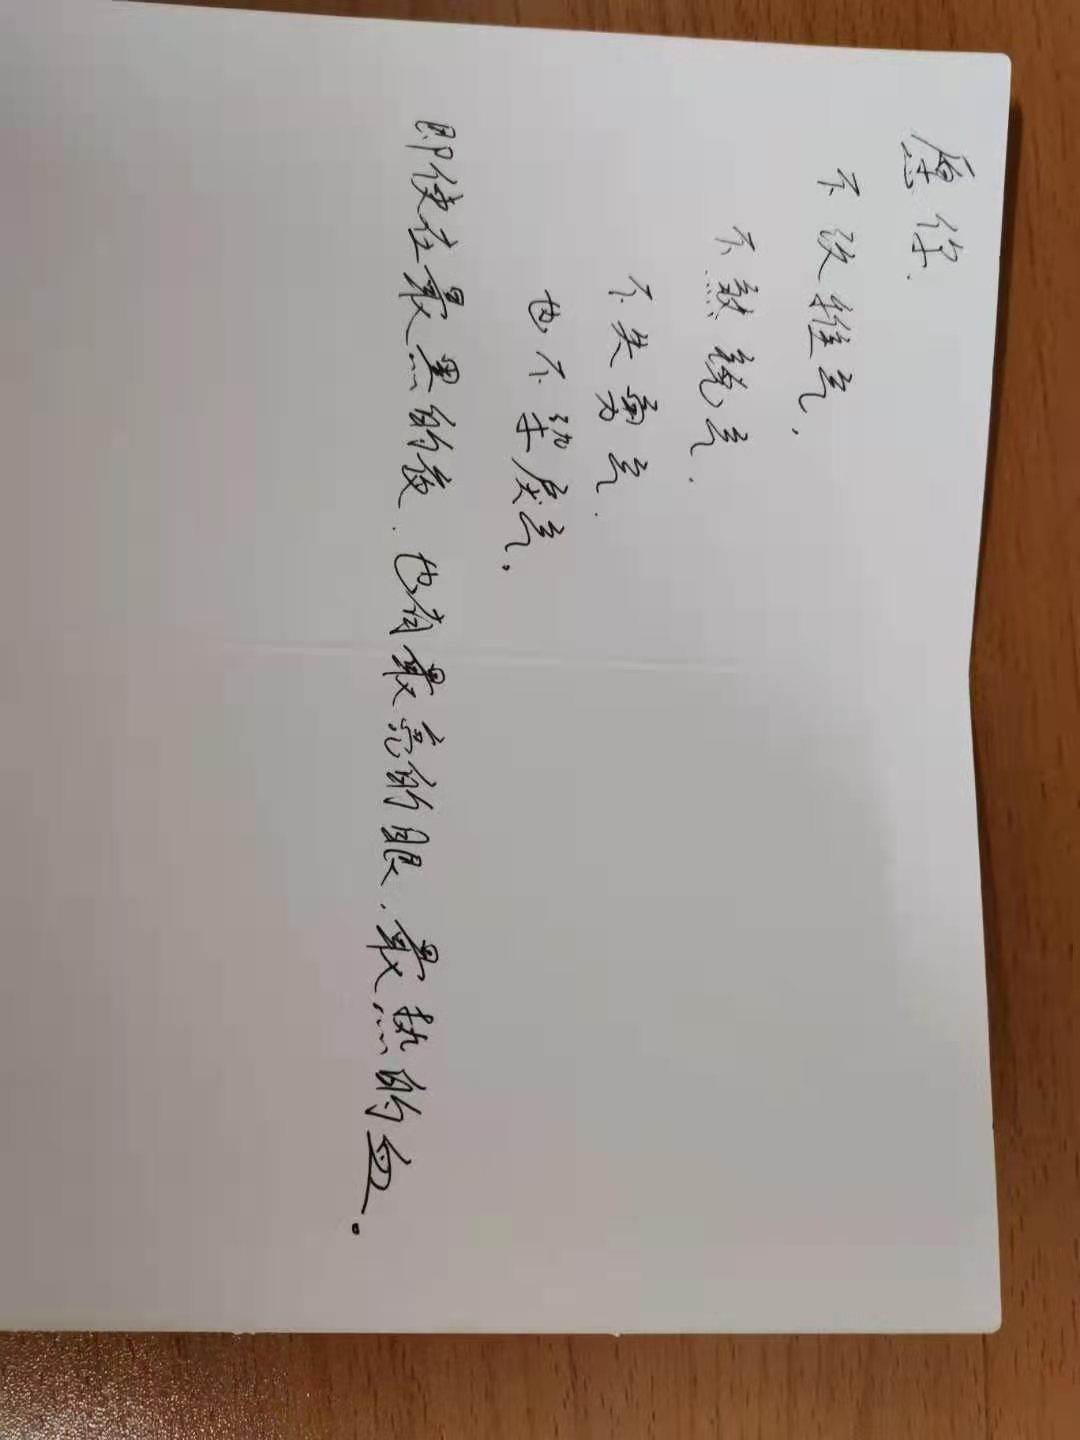 愿你
不改雅气,
不熬锐气.
不失勇气.
也不染戾气。
即使在最黑的夜.也有最亮的眼.最热的血。